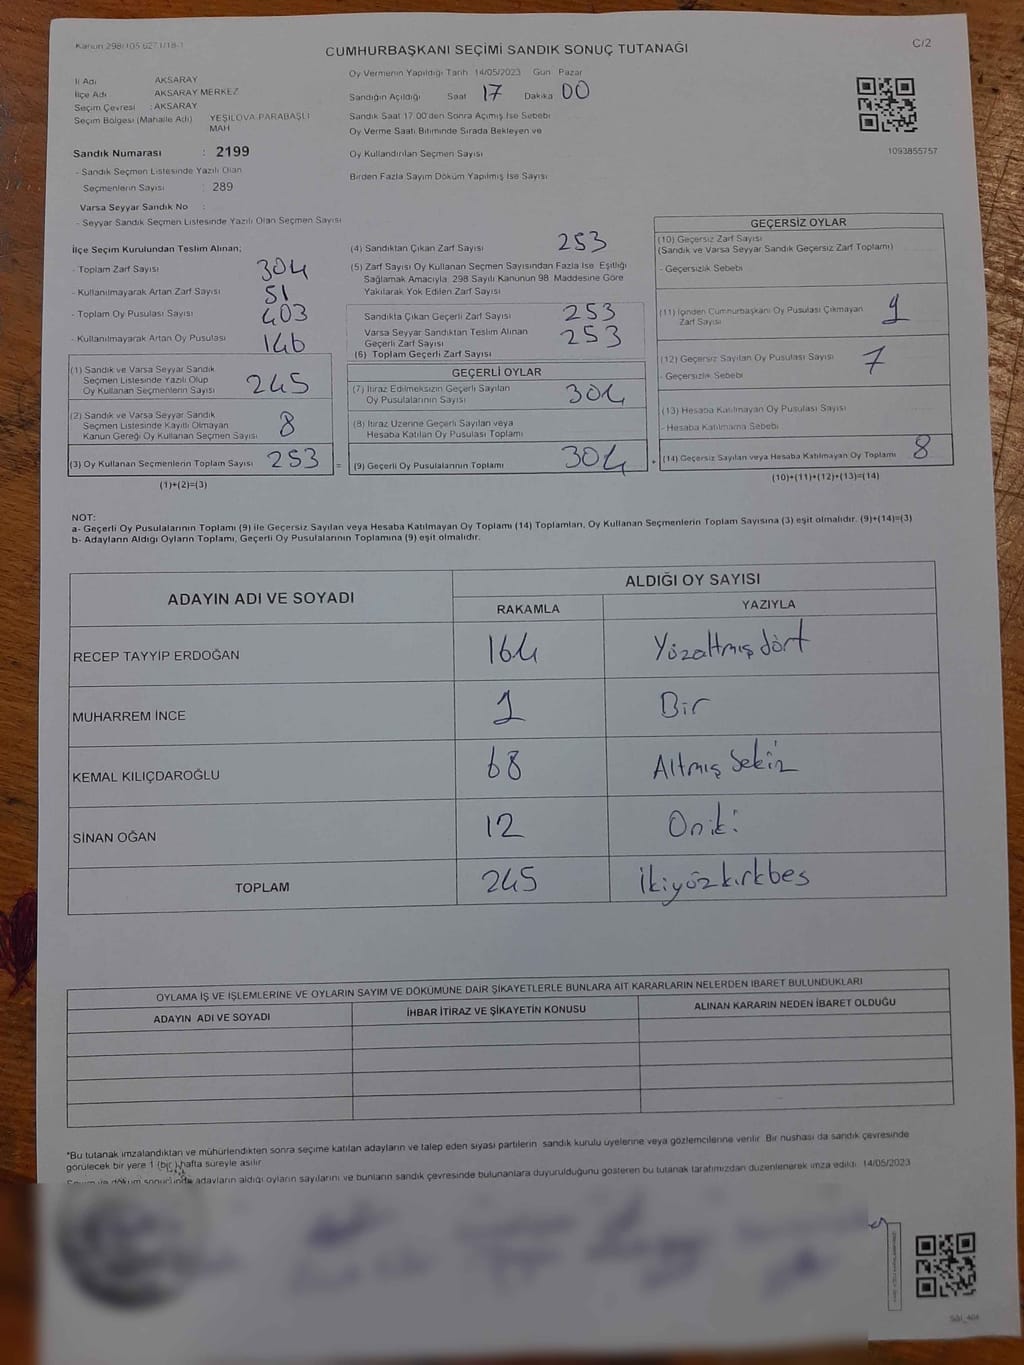 Kanun 298/105 6271/18-1
C/2
CUMHURBAŞKANI SEÇİMİ SANDIK SONUÇ TUTANAĞI
İl Adı AKSARAY
İlçe Adı AKSARAY MERKEZ
Seçim Çevresi : AKSARAY
Seçim Bölgesi (Mahalle Adı) YEŞİLOVA PARABAŞLI MAH
Sandık Numarası : 2199
- Sandık Seçmen Listesinde Yazılı Olan
Seçmenlerin Sayısı : 289
Varsa Seyyar Sandık No :
- Seyyar Sandık Seçmen Listesinde Yazılı Olan Seçmen Sayısı
Oy Vermenin Yapıldığı Tarih 14/05/2023 Gün Pazar
Sandığın Açıldığı Saat 17 Dakika 00
Sandık Saat 17.00'den Sonra Açımış İse Sebebi
Oy Verme Saati Bitiminde Sırada Bekleyen ve
Oy Kullandırılan Seçmen Sayısı
Birden Fazla Sayım Döküm Yapılmış İse Sayısı
1093855757
İlçe Seçim Kurulundan Teslim Alınan;
- Toplam Zarf Sayısı 304
- Kullanılmayarak Artan Zarf Sayısı 51
- Toplam Oy Pusulası Sayısı 403
- Kullanılmayarak Artan Oy Pusulası 146
(1) Sandık ve Varsa Seyyar Sandık
Seçmen Listesinde Yazılı Olup
Oy Kullanan Seçmenlerin Sayısı 245
(2) Sandık ve Varsa Seyyar Sandık
Seçmen Listesinde Kayıtlı Olmayan
Kanun Gereği Oy Kullanan Seçmen Sayısı 8
(3) Oy Kullanan Seçmenlerin Toplam Sayısı 253
(1)+(2)=(3)
(4) Sandıktan Çıkan Zarf Sayısı 253
(5) Zarf Sayısı Oy Kullanan Seçmen Sayısından Fazla İse Eşitliği
Sağlamak Amacıyla, 298 Sayılı Kanunun 98. Maddesine Göre
Yakılarak Yok Edilen Zarf Sayısı
Sandıkta Çıkan Geçerli Zarf Sayısı 253
Varsa Seyyar Sandıktan Teslim Alınan
Geçerli Zarf Sayısı 253
(6) Toplam Geçerli Zarf Sayısı
GEÇERLİ OYLAR
(7) İtiraz Edilmeksizin Geçerli Sayılan
Oy Pusulalarının Sayısı 304
(8) İtiraz Üzerine Geçerli Sayılan veya
Hesaba Katılan Oy Pusulası Toplamı
= (9) Geçerli Oy Pusulalarının Toplamı 304 +
GEÇERSİZ OYLAR
(10) Geçersiz Zarf Sayısı
(Sandık ve Varsa Seyyar Sandık Geçersiz Zarf Toplamı)
- Geçersizlik Sebebi
(11) İçinden Cumhurbaşkanı Oy Pusulası Çıkmayan
Zarf Sayısı 1
(12) Geçersiz Sayılan Oy Pusulası Sayısı 7
- Geçersizlik Sebebi
(13) Hesaba Katılmayan Oy Pusulası Sayısı
- Hesaba Katılmama Sebebi
(14) Geçersiz Sayılan veya Hesaba Katılmayan Oy Toplamı 8
(10)+(11)+(12)+(13)=(14)
NOT:
a- Geçerli Oy Pusulalarının Toplamı (9) ile Geçersiz Sayılan veya Hesaba Katılmayan Oy Toplamı (14) Toplamları, Oy Kullanan Seçmenlerin Toplam Sayısına (3) eşit olmalıdır. (9)+(14)=(3)
b- Adayların Aldığı Oyların Toplamı, Geçerli Oy Pusulalarının Toplamına (9) eşit olmalıdır.
ADAYIN ADI VE SOYADI
ALDIĞI OY SAYISI
RAKAMLA YAZIYLA
RECEP TAYYİP ERDOĞAN 164 Yüzaltmışdört
MUHARREM İNCE 1 Bir
KEMAL KILIÇDAROĞLU 68 Altmış Sekiz
SİNAN OĞAN 12 Oniki
TOPLAM 245 İkiyüzkırkbeş
OYLAMA İŞ VE İŞLEMLERİNE VE OYLARIN SAYIM VE DÖKÜMÜNE DAİR ŞİKAYETLERLE BUNLARA AİT KARARLARIN NELERDEN İBARET BULUNDUKLARI
ADAYIN ADI VE SOYADI İHBAR İTİRAZ VE ŞİKAYETİN KONUSU ALINAN KARARIN NEDEN İBARET OLDUĞU
*Bu tutanak imzalandıktan ve mühürlendikten sonra seçime katılan adayların ve talep eden siyasi partilerin sandık kurulu üyelerine veya gözlemcilerine verilir. Bir nüshası da sandık çevresinde
görülecek bir yere 1 (bir) hafta süreyle asılır.
Sayım ve döküm sonucunda adayların aldığı oyların sayılarını ve bunların sandık çevresinde bulunanlara duyurulduğunu gösteren bu tutanak tarafımızdan düzenlenerek imza edildi. 14/05/2023